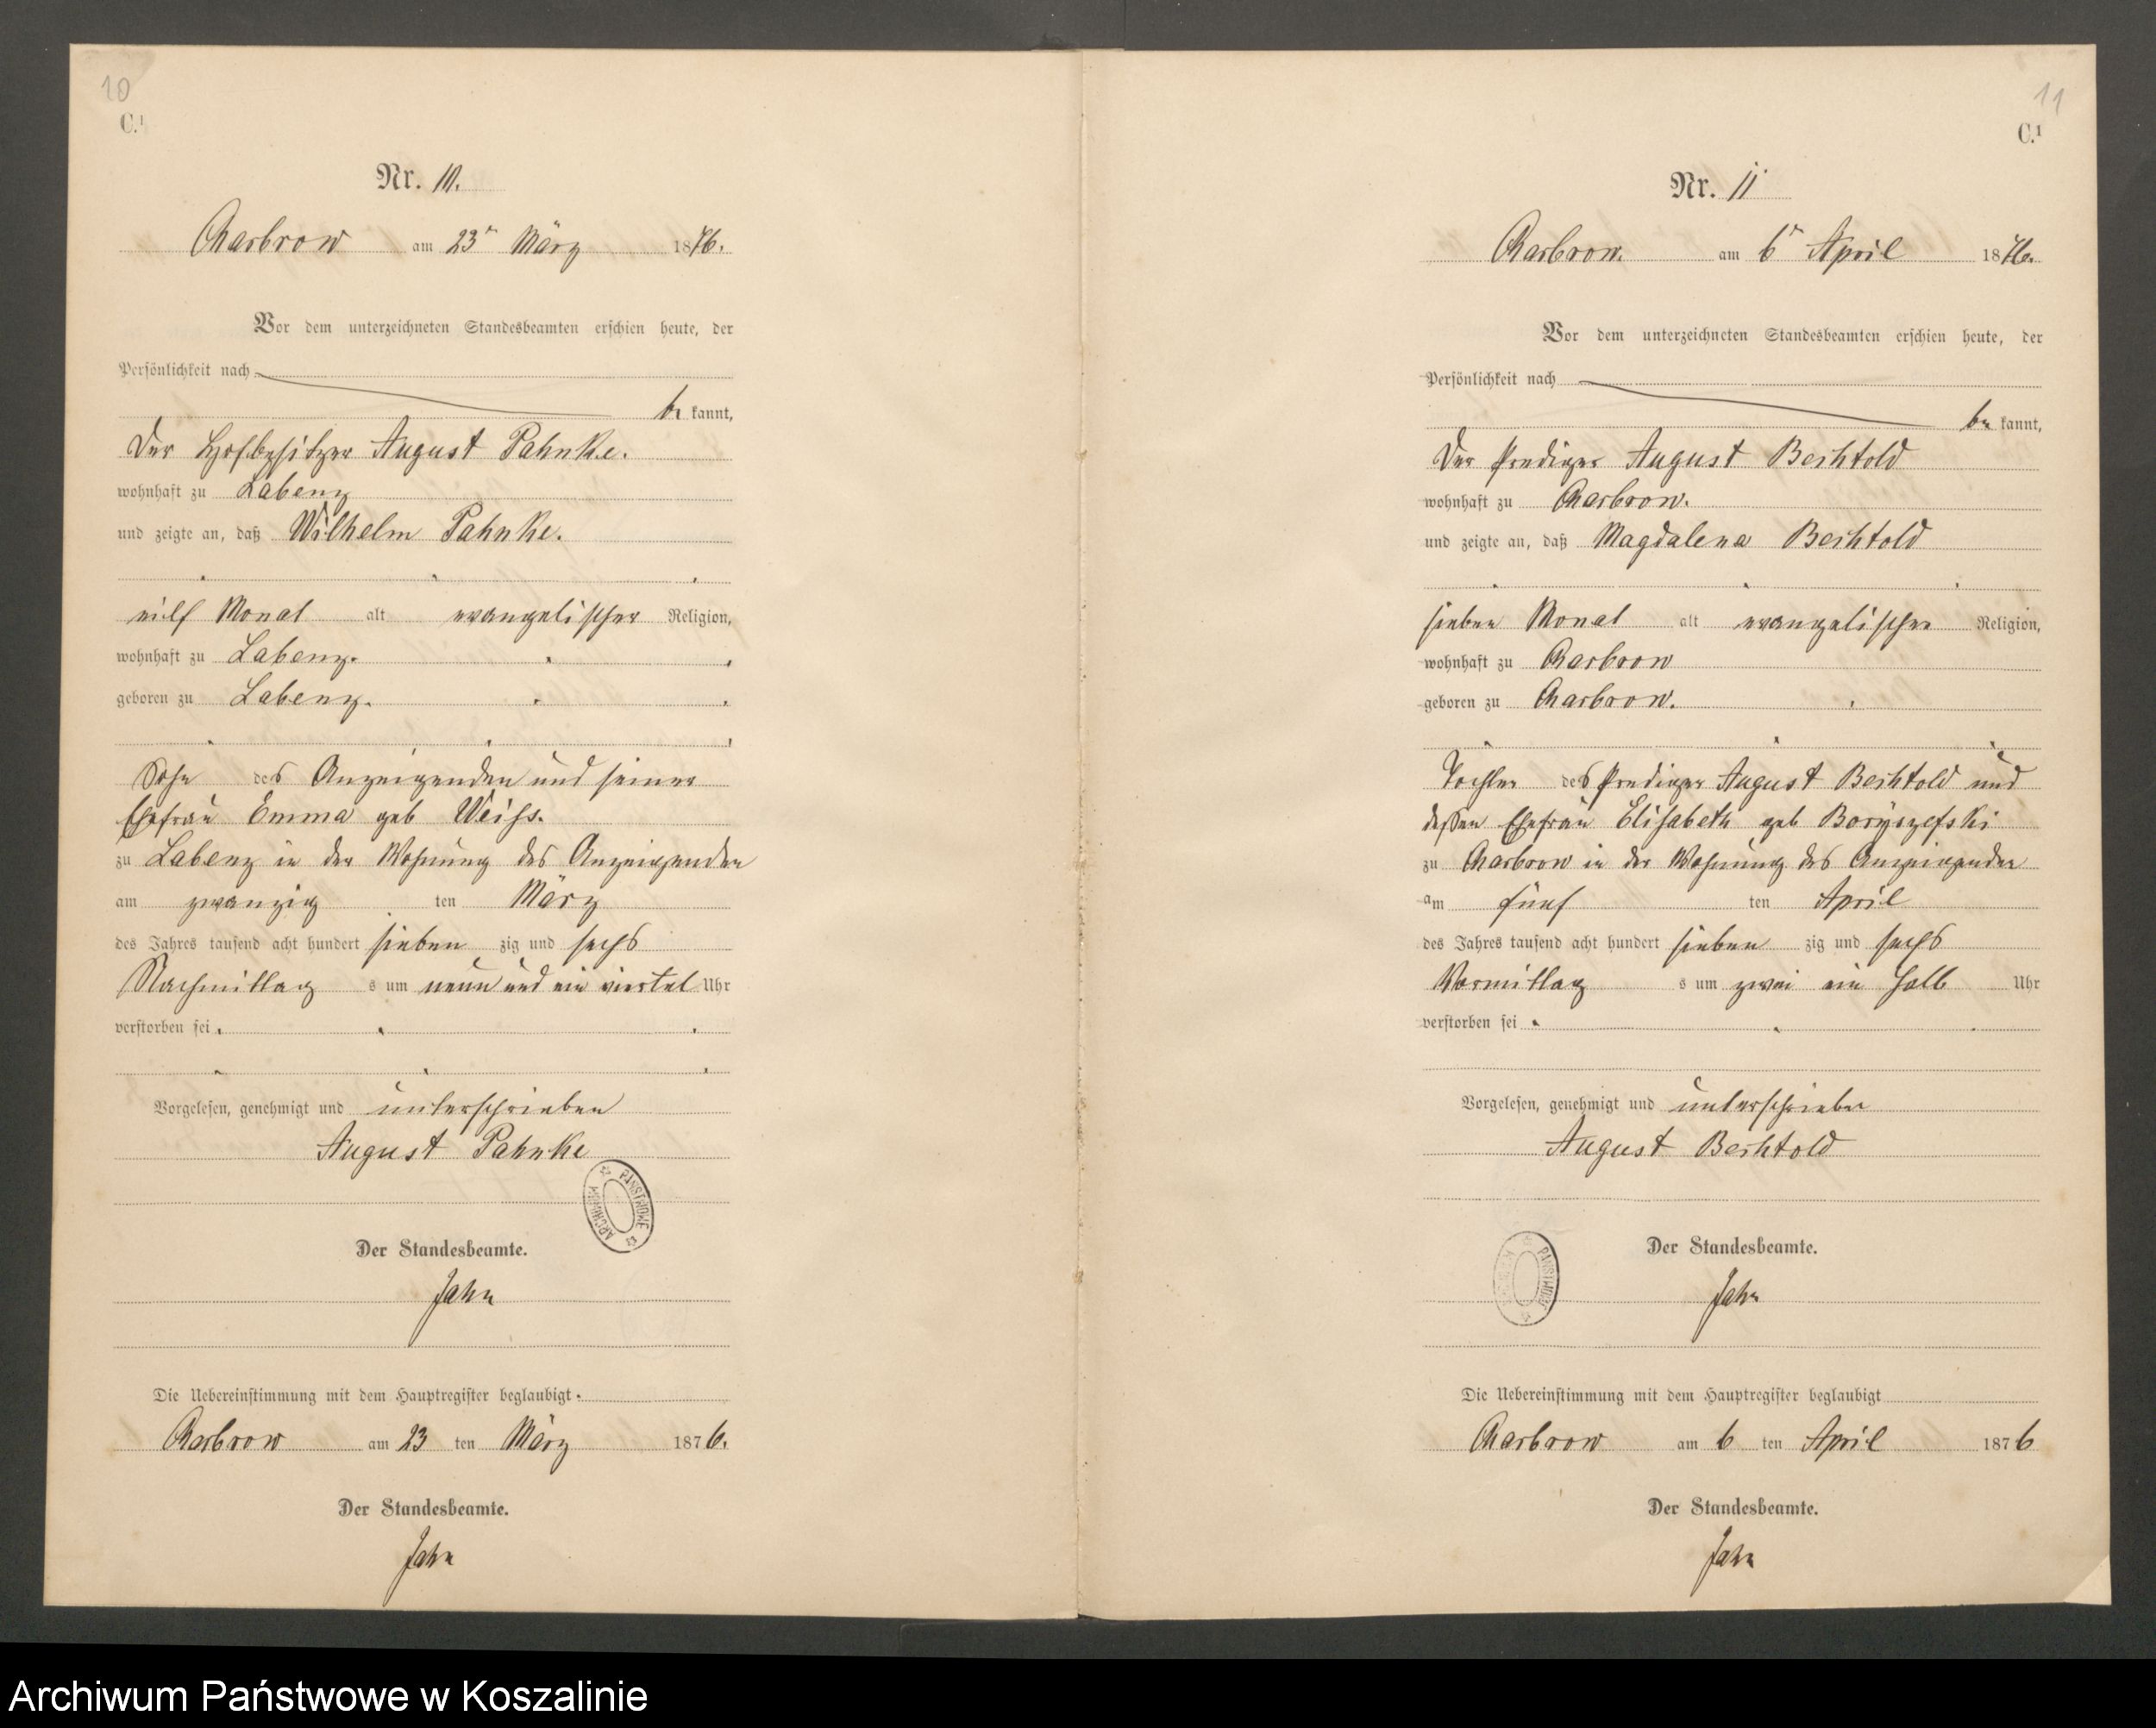 10
C.1
Nr. 10.
Charbrow am 23n März 1876.
Vor dem unterzeichneten Standesbeamten erschien heute, der
Persönlichkeit nach
be kannt,
Der Hofbesitzer August Pahnke.
wohnhaft zu Labenz
und zeigte an, daß Wilhelm Pahnke.
eilf Monat alt evangelischer Religion,
wohnhaft zu Labenz.
geboren zu Labenz.
Sohn des Anzeigenden und seiner
Ehefrau Emma geb Weiss.
zu Labenz in der Wohnung des Anzeigenden
am zwanzig ten März
des Jahres tausend acht hundert sieben zig und sechs
Nachmittag s um neun und ein viertel Uhr
verstorben sei.
Vorgelesen, genehmigt und unterschrieben
August Pahnke
ARCHIWUM PAŃSTWOWE
Der Standesbeamte.
Jahn
Die Uebereinstimmung mit dem Hauptregister beglaubigt.
Charbrow am 23 ten März 1876.
Der Standesbeamte.
Jahn
11
C.1
Nr. 11
Charbrow. am 6n April 1876.
Vor dem unterzeichneten Standesbeamten erschien heute, der
Persönlichkeit nach
be kannt,
Der Prediger August Bechtold
wohnhaft zu Charbrow.
und zeigte an, daß Magdalena Bechtold
sieben Monat alt evangelischer Religion,
wohnhaft zu Charbrow
geboren zu Charbrow.
Tochter des Prediger August Bechtold und
dessen Ehefrau Elisabeth geb
zu Charbrow in der Wohnung des Anzeigenden
am fünf ten April
des Jahres tausend acht hundert sieben zig und sechs
Vormittag s um zwei ein halb Uhr
verstorben sei
Vorgelesen, genehmigt und unterschrieben
August Bechtold
Der Standesbeamte.
Jahn
Die Uebereinstimmung mit dem Hauptregister beglaubigt
Charbrow am 6 ten April 1876
Der Standesbeamte.
Jahn
Archiwum Państwowe w Koszalinie